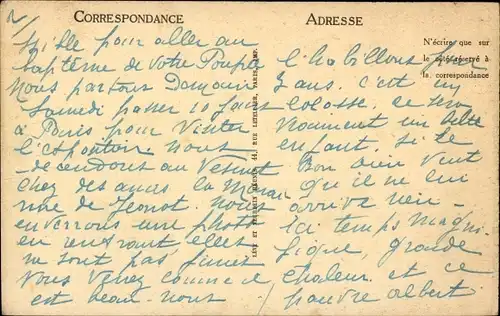 2/
CORRESPONDANCE
ADRESSE
N'écrire que sur
le côté réservé à
la correspondance
sible pour aller au
baptême de votre Poupée
Nous partons Demain
Samedi passer 10 jours
à Paris pour visiter
l'Expontoire Nous
decendons au Vesinet
chez des amis la
rine de Jeonot. Nous
enverrons une photo
en rentrant, elles
ne sont pas finies
Vous verez comme c
est beau. nous
l'habillons
3 ans. c'est un
colosse. ce sera
vraiment un belle
enfant si le
Bon Dieu veut
qu'il ne lui
arrive rien
Ici temps magni
fique, grande
chaleur. et ce
pauvre albert
LÉVY ET NEURDEIN RÉUNIS, 44, RUE LETELLIER, PARIS. IMP.